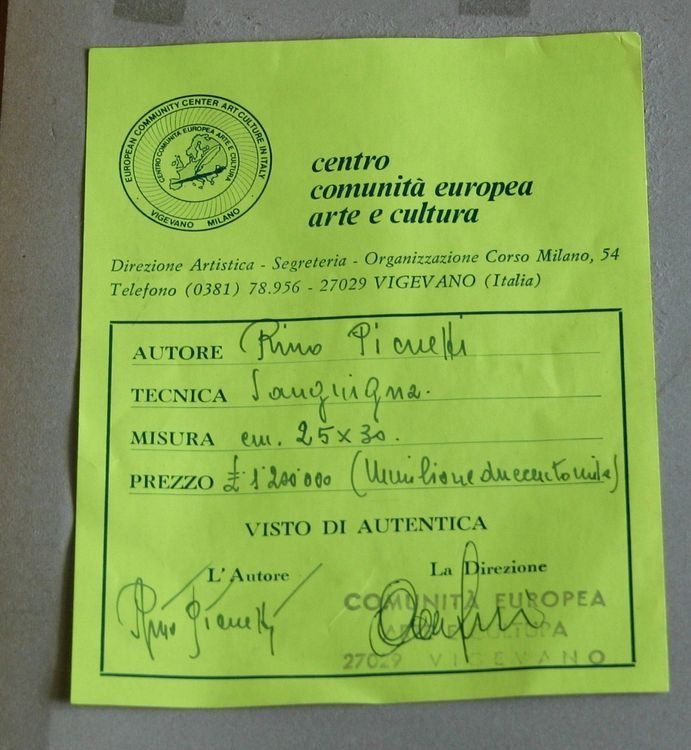 EUROPEAN COMMUNITY CENTER ART CULTURE IN ITALY
CENTRO COMUNITÀ EUROPEA ARTE E CULTURA
VIGEVANO MILANO
centro
comunità europea
arte e cultura
Direzione Artistica - Segreteria - Organizzazione Corso Milano, 54
Telefono (0381) 78.956 - 27029 VIGEVANO (Italia)
AUTORE Rino Pianetti
TECNICA Sanguigna.
MISURA cm. 25x30.
PREZZO £ 1'200'000 (Unmilioneduecentomila)
VISTO DI AUTENTICA
L'Autore La Direzione
Rino Pianetti
COMUNITÀ EUROPEA
ARTE E CULTURA
27029 VIGEVANO